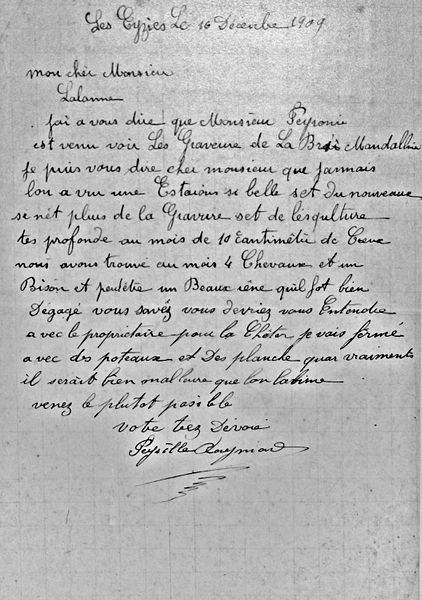 Les Eyzies Le 16 Décembre 1909
mon cher Monsieur
Lalanne
jai a vous dire que Monsieur Peyronie
est venu voir Les Graveure de La Mandallin
Je puis vous dire cher monsieur que jarmais
lon a vru une Estaions si belle set du nouveaux
se nèt plus de la Gravure set de lésqulture
tes profonde au mois de 10 Centimétie de Creux
nous avous trouvé au mois 4 Chevaux et un
Bison et peutètre un Beaux rène quil fot bien
Dégagé vous savéz vous devriez vous Entendre
avec le propriétaire pour la je vais férmé
avec des poteaux et Des planche quar vraiments
il serait bien mallaire que lon labime
venez le plutot possible
vote trez Devoué
Peyrille